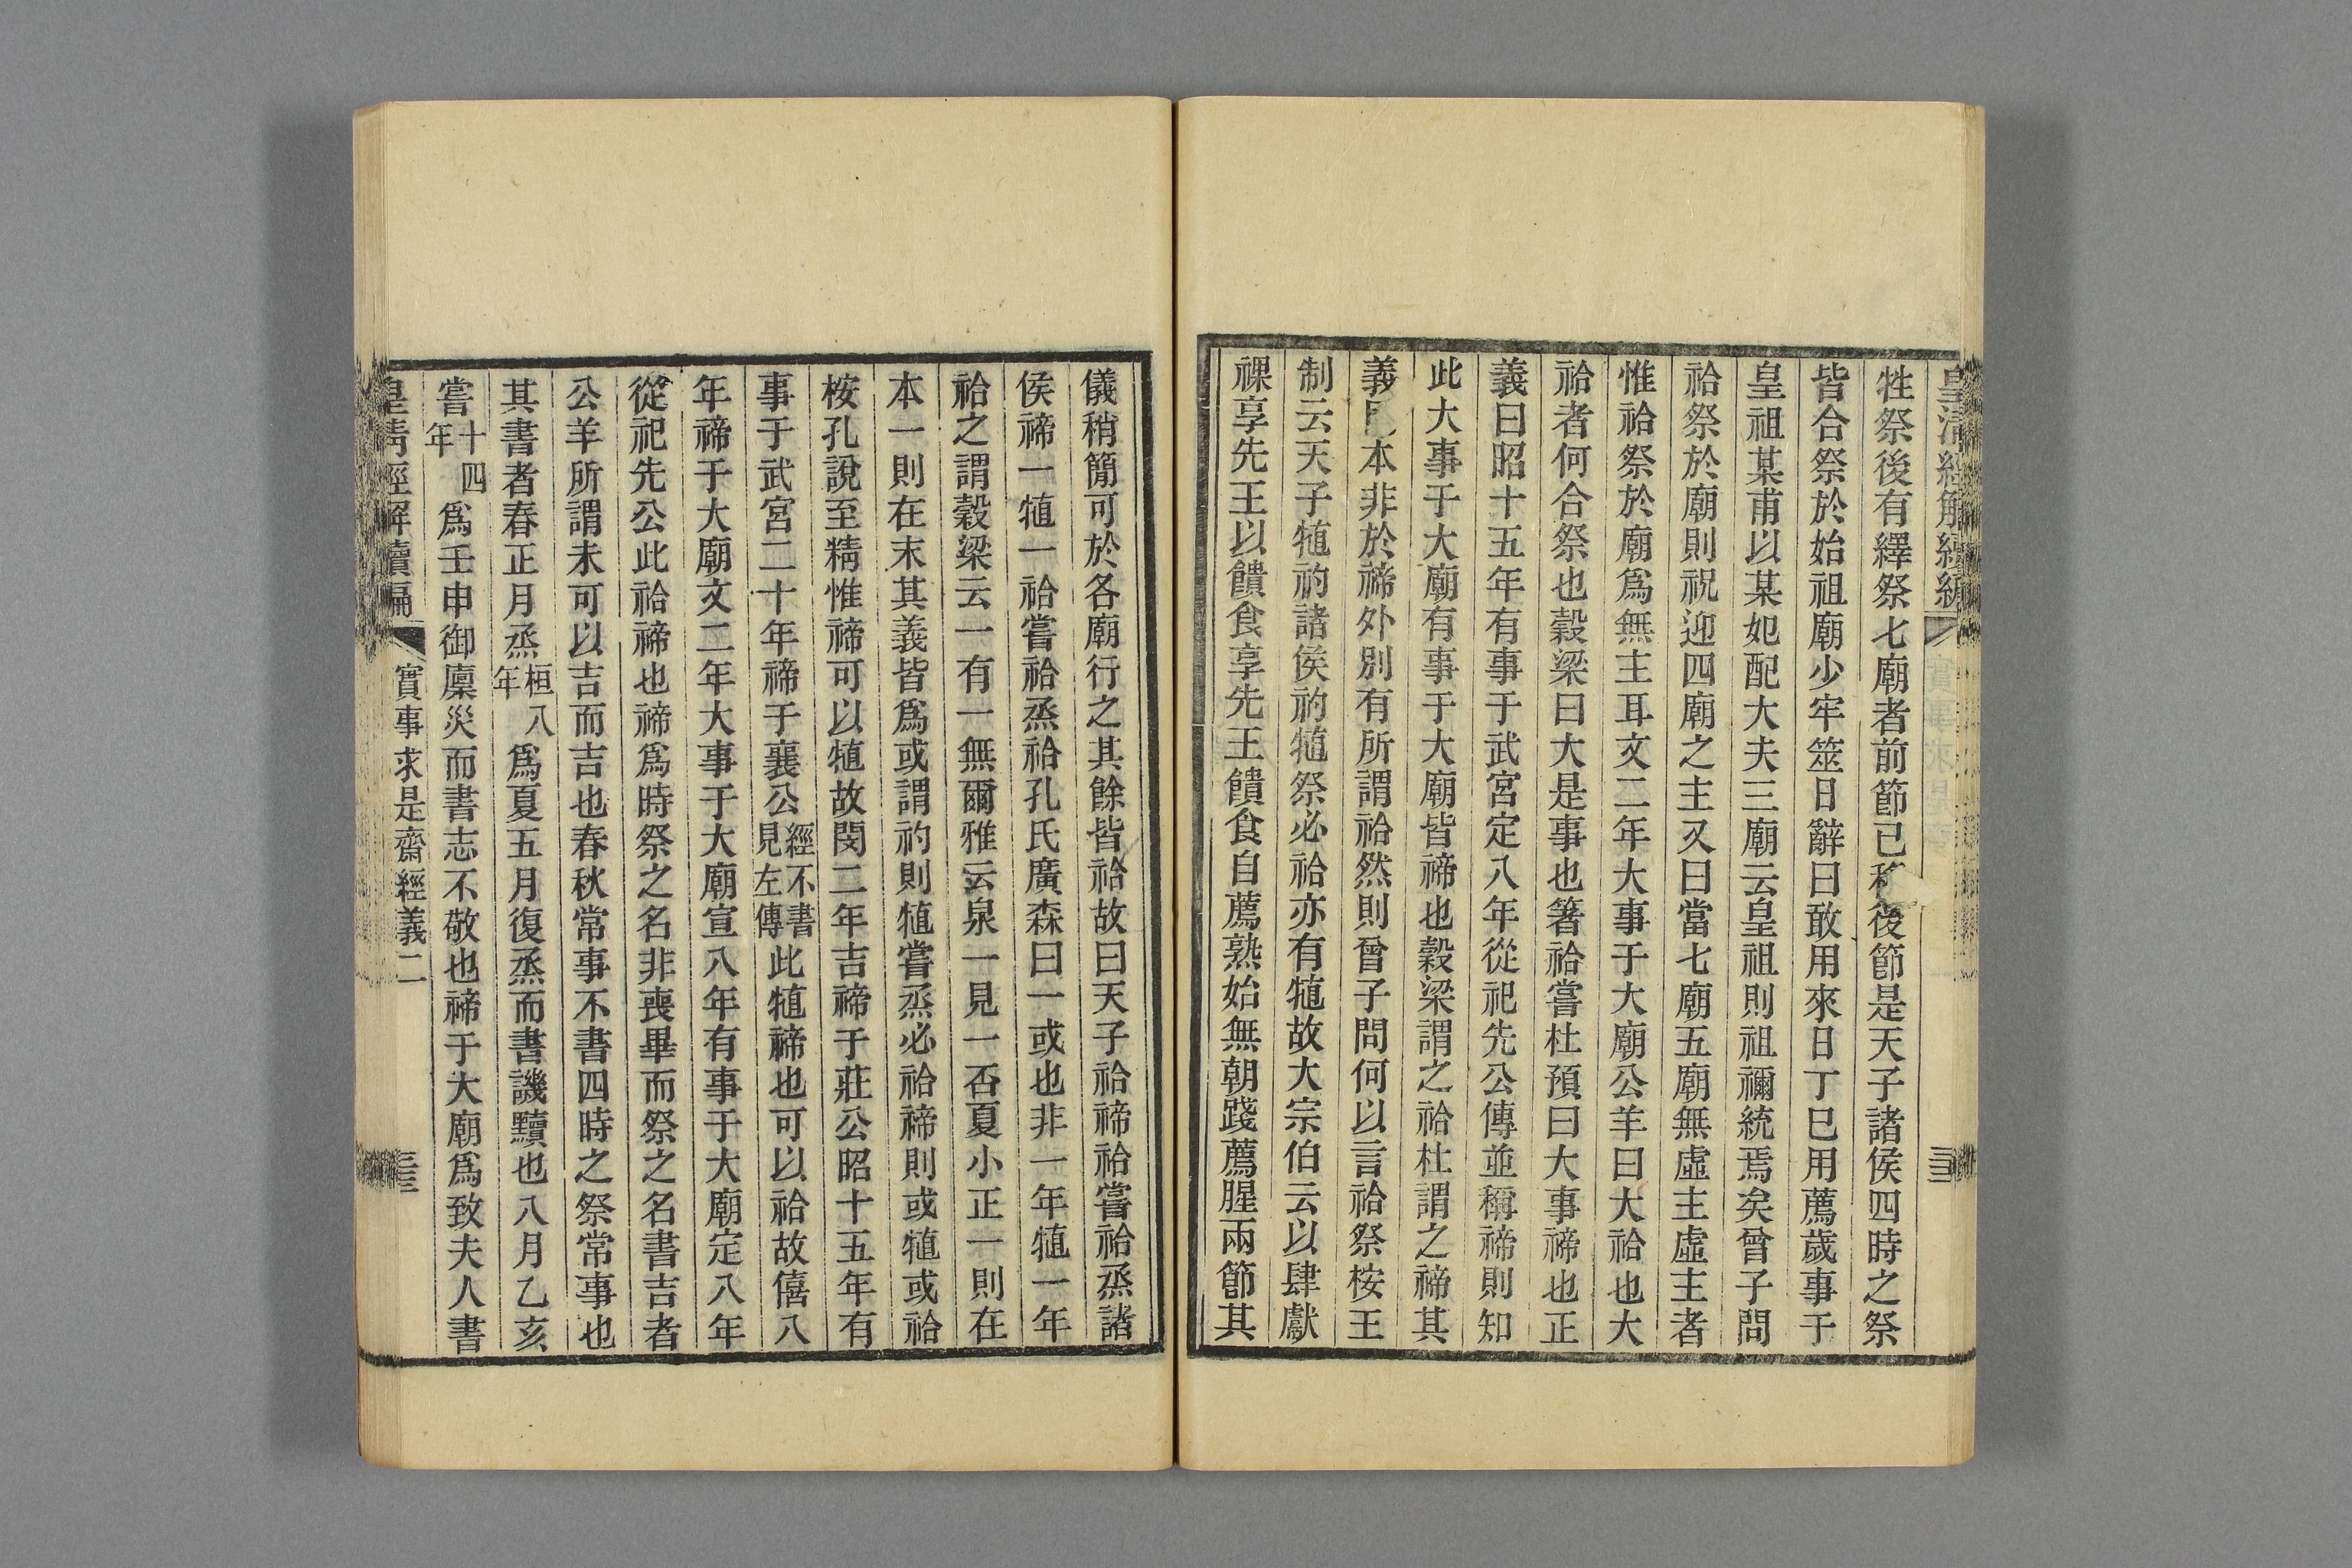 皇清經解續編
三三
牲祭後有繹祭七廟者前節已後節是天子諸侯四時之祭
皆合祭於始祖廟少牢筮日辭曰敢用來日丁巳用薦歲事于
皇祖某甫以某妃配大夫三廟云皇祖則祖禰統焉矣曾子問
祫祭於廟則祝迎四廟之主又曰當七廟五廟無虛主虛主者
惟祫祭於廟爲無主耳文二年大事于大廟公羊曰大祫也大
祫者何合祭也穀梁曰大是事也箸祫嘗杜預曰大事禘也正
義曰昭十五年有事于武宮定八年從祀先公傳並稱禘則知
此大事于大廟有事于大廟皆禘也穀梁謂之祫杜謂之禘其
義本非於禘外別有所謂祫然則曾子問何以言祫祭桉王
制云天子犆礿諸侯礿犆祭必祫亦有犆故大宗伯云以肆獻
祼享先王以饋食享先王饋食自薦熟始無朝踐薦腥兩節其
儀稍簡可於各廟行之其餘皆祫故曰天子祫禘祫嘗祫烝諸
侯禘一犆一祫嘗祫烝祫孔氏廣森曰一或也非一年犆一年
祫之謂穀梁云一有一無爾雅云泉一見一否夏小正一則在
本一則在末其義皆爲或謂礿則犆嘗烝必祫禘則或犆或祫
桉孔說至精惟禘可以犆故閔二年吉禘于莊公昭十五年有
事于武宮二十年禘于襄公經不書見左傳此犆禘也可以祫故僖八
年禘于大廟文二年大事于大廟宣八年有事于大廟定八年
從祀先公此祫禘也禘爲時祭之名非喪畢而祭之名書吉者
公羊所謂未可以吉而吉也春秋常事不書四時之祭常事也
其書者春正月烝桓八年爲夏五月復烝而書譏黷也八月乙亥
嘗十四年爲壬申御廩災而書志不敬也禘于大廟爲致夫人書
皇清經解續編
實事求是齋經義二
三三